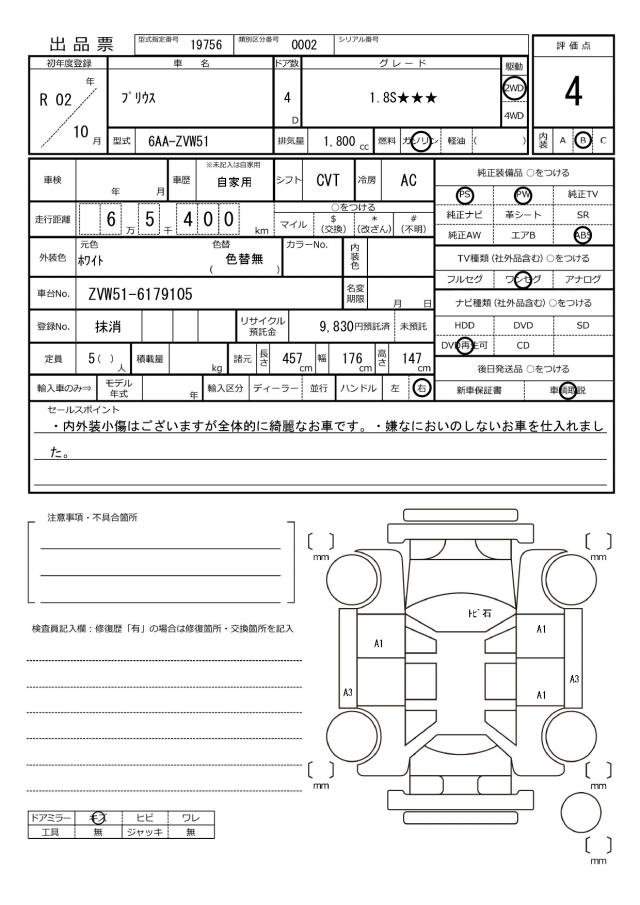 出品票 型式指定番号 19756 類別区分番号 0002 シリアル番号
評価点
4
初年度登録 車名 ドア数 グレード 駆動
R 02 年 10 月
プリウス
4 D
1.8S★★★
2WD
4WD
型式 6AA-ZVW51 排気量 1,800 cc 燃料 ガソリン 軽油 ( )
内装 A B C
車検 年 月 車歴 ※未記入は自家用 自家用 シフト CVT 冷房 AC
走行距離 6 万 5 千 4 0 0 km
○をつける
マイル $(交換) *(改ざん) #(不明)
外装色 元色 ホワイト 色替 ( 色替無 ) カラーNo. 内装色
車台No. ZVW51-6179105 名変期限 月 日
登録No. 抹消 リサイクル預託金 9,830円預託済 未預託
定員 5 ( ) 人 積載量 kg 諸元 長さ 457 cm 幅 176 cm 高さ 147 cm
輸入車のみ⇒ モデル年式 年 輸入区分 ディーラー 並行 ハンドル 左 右
純正装備品 ○をつける
PS PW 純正TV
純正ナビ 革シート SR
純正AW エアB ABS
TV種類 (社外品含む) ○をつける
フルセグ ワンセグ アナログ
ナビ種類 (社外品含む) ○をつける
HDD DVD SD
DVD再生可 CD
後日発送品 ○をつける
新車保証書 車輌取説
セールスポイント
・内外装小傷はございますが全体的に綺麗なお車です。・嫌なにおいのしないお車を仕入れまし
た。
注意事項・不具合箇所
検査員記入欄：修復歴「有」の場合は修復箇所・交換箇所を記入
ドアミラー キズ ヒビ ワレ
工具 無 ジャッキ 無
mm
mm
トビ石
A1
A1
A3
A1
A3
mm
mm
mm